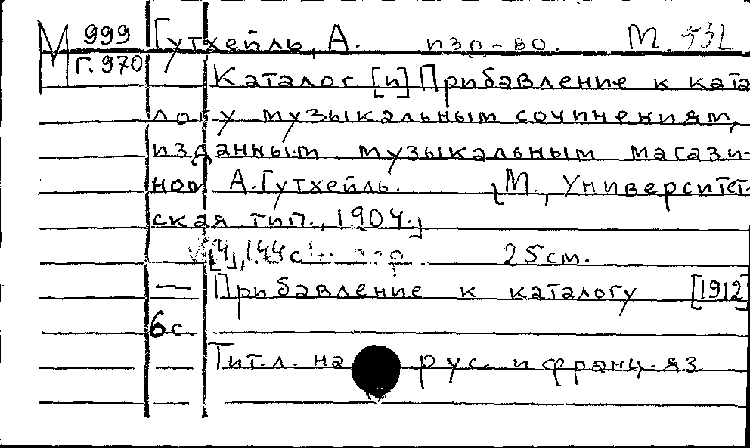 М 999 Гутхейль, А. изд-во. М. 532
Г. 970
Каталог [и] Прибавление к ката
логу музыкальным сочинениям,
изданным музыкальным магази-
ном А. Гутхейль. [М., Университет-
ская тип., 1904.]
[4], 144 с. 25 см.
— Прибавление к каталогу [1912]
6с
Тит. л. на рус. и франц. яз